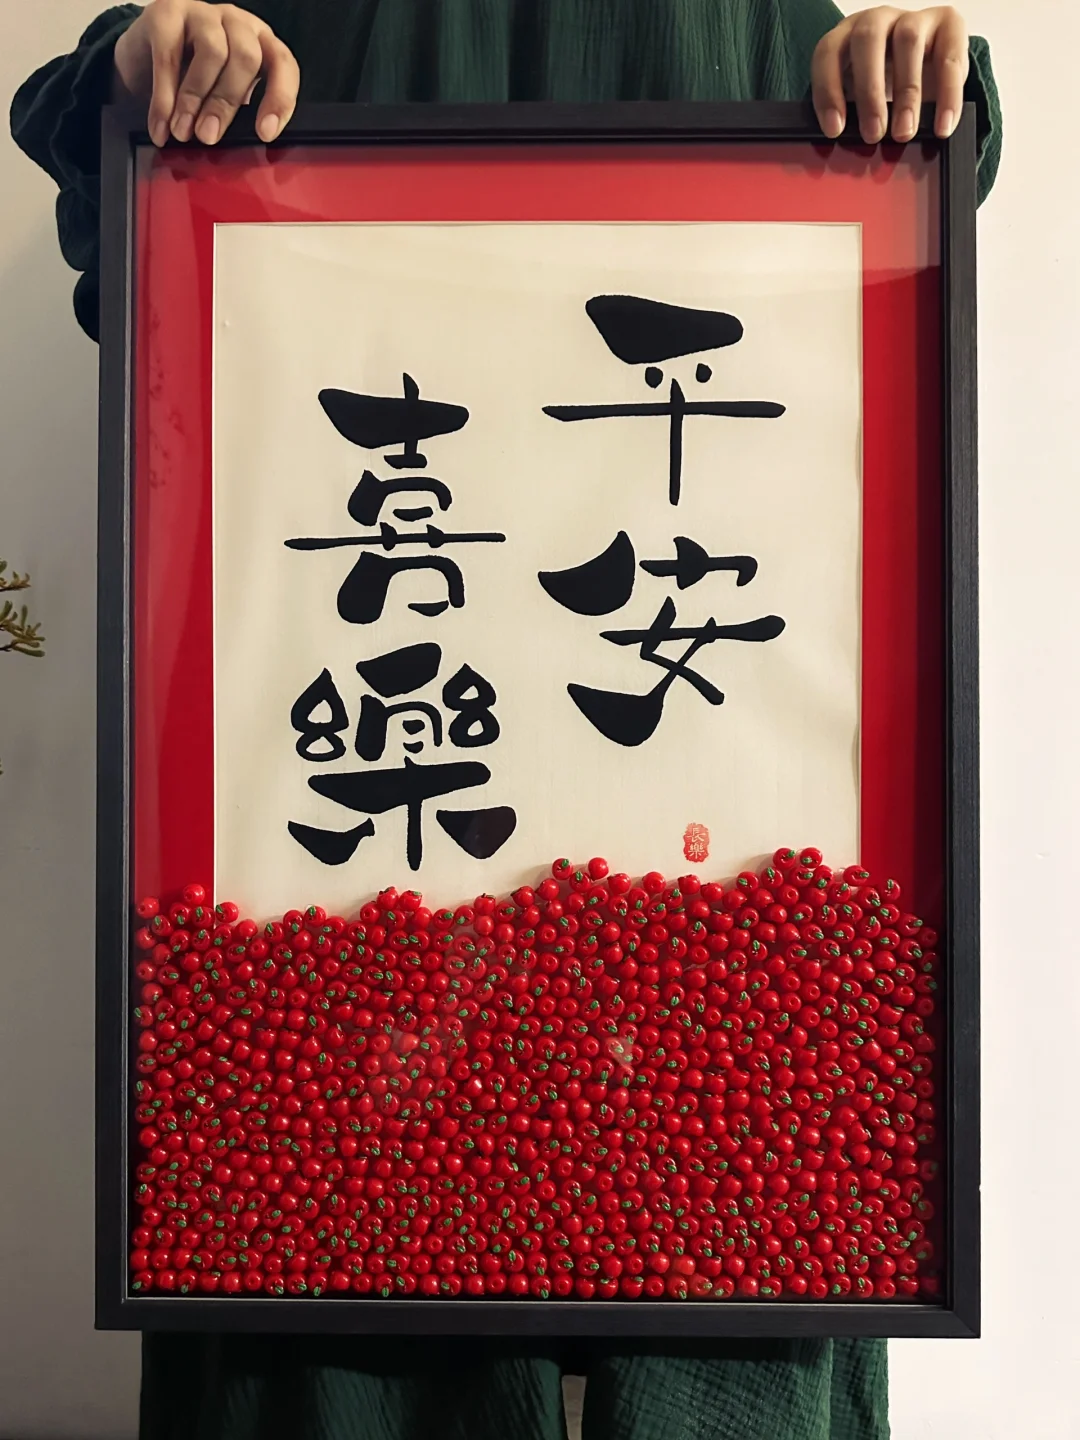 平安
喜樂
長樂